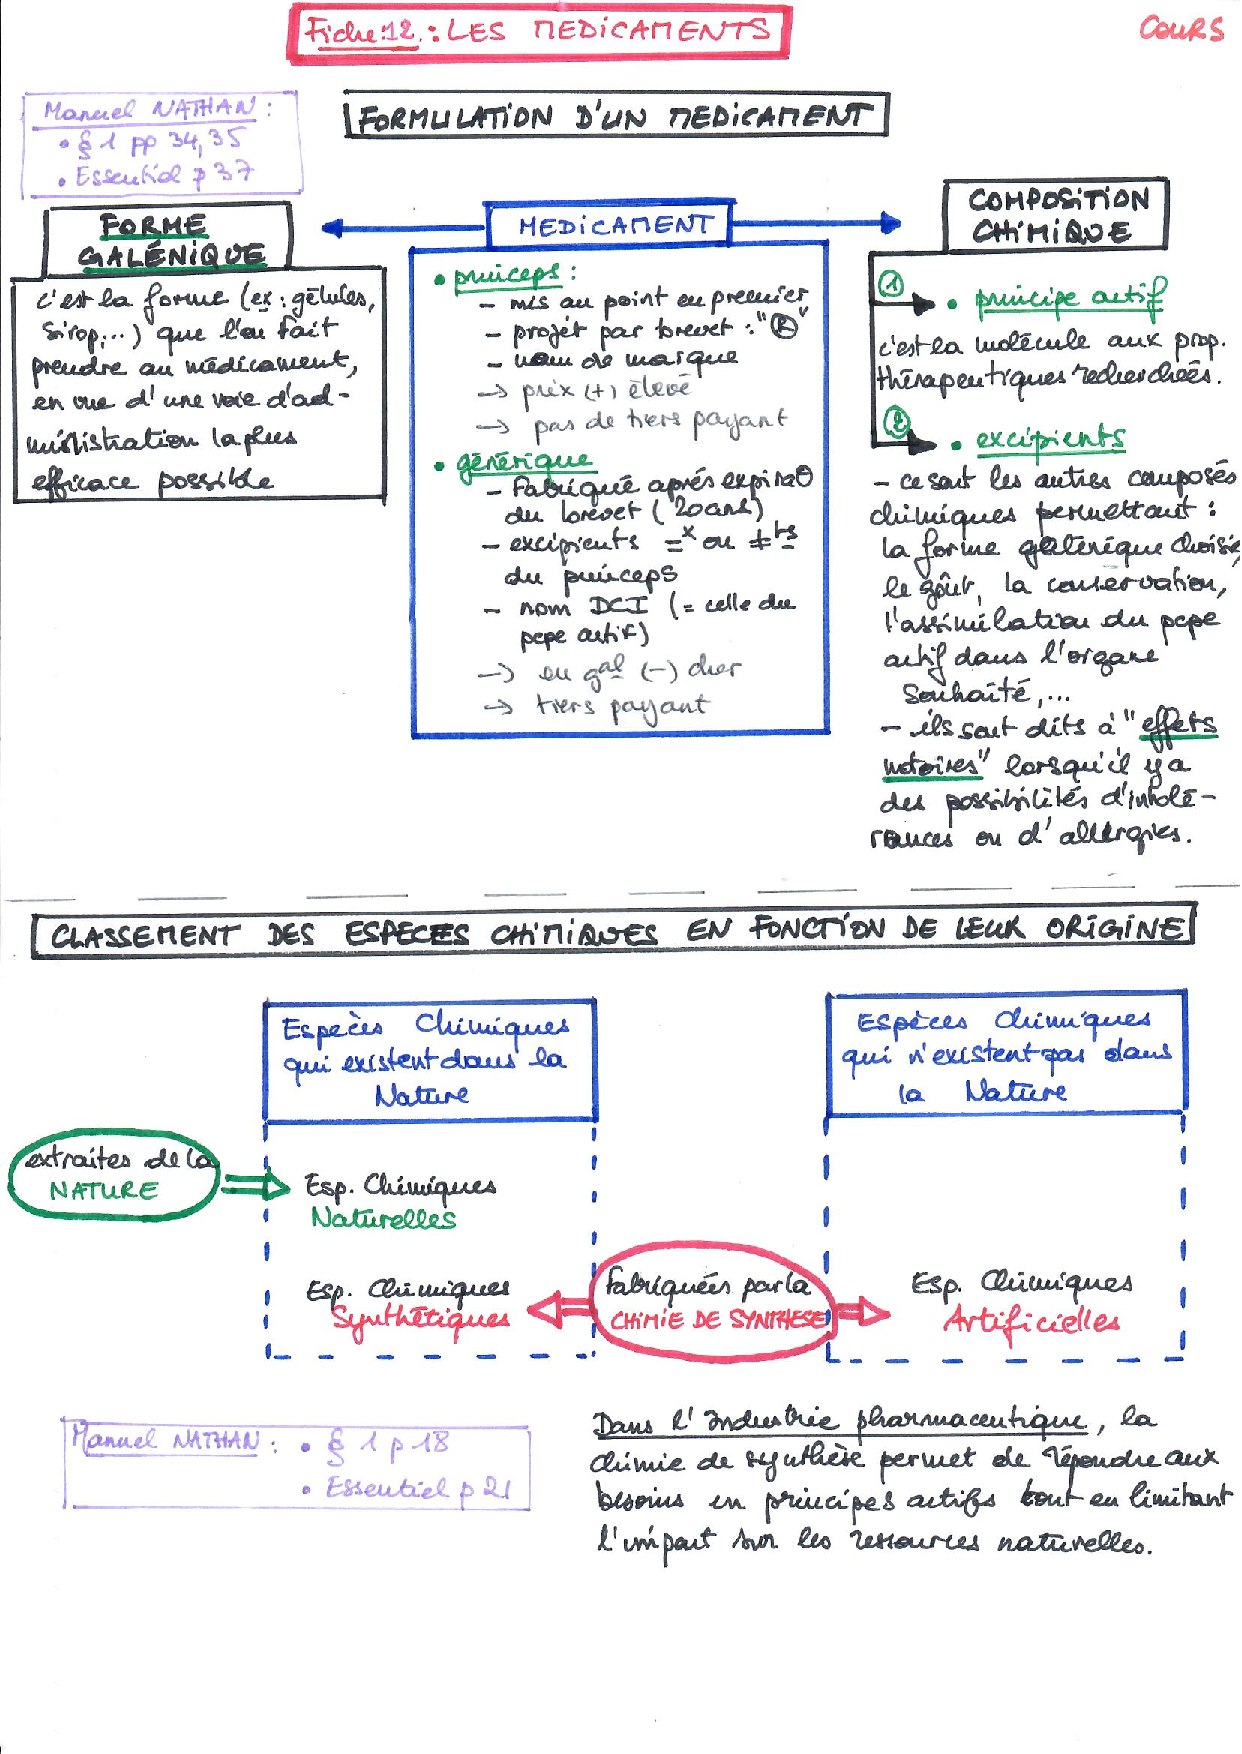 Fiche 12 : LES MEDICAMENTS
COURS
Manuel NATHAN :
• § 1 pp 34, 35
• Essentiel p 37
FORMULATION D'UN MEDICAMENT
FORME
GALÉNIQUE
c'est la forme (ex : gélules,
sirop,...) que l'on fait
prendre au médicament,
en vue d'une voie d'ad-
ministration la plus
efficace possible
MEDICAMENT
• princeps :
- mis au point en premier
- projét par brevet : "®"
- nom de marque
→ prix (+) élevé
→ pas de tiers payant
• générique
- fabriqué après expirat°
du brevet (20ans)
- excipients =x ou ≠ts
du princeps
- nom DCI (= celle du
pcpe actif)
→ en gal (-) cher
→ tiers payant
COMPOSITION
CHIMIQUE
① • principe actif
c'est la molécule aux prop.
thérapeutiques recherchées.
② • excipients
- ce sont les autres composés
chimiques permettant :
la forme galénique choisie
le goût, la conservation,
l'assimilation du pcpe
actif dans l'organe
souhaité,...
- ils sont dits à "effets
notoires" lorsqu'il y a
des possibilités d'intolé-
rances ou d'allergies.
CLASSEMENT DES ESPECES CHIMIQUES EN FONCTION DE LEUR ORIGINE
Espèces Chimiques
qui existent dans la
Nature
Espèces Chimiques
qui n'existent pas dans
la Nature
extraites de la
NATURE
Esp. Chimiques
Naturelles
Esp. Chimiques
Synthétiques
Fabriquées par la
CHIMIE DE SYNTHESE
Esp. Chimiques
Artificielles
Manuel NATHAN : • § 1 p 18
• Essentiel p 21
Dans l'Industrie pharmaceutique, la
chimie de synthèse permet de répondre aux
besoins en principes actifs tout en limitant
l'impact sur les ressources naturelles.